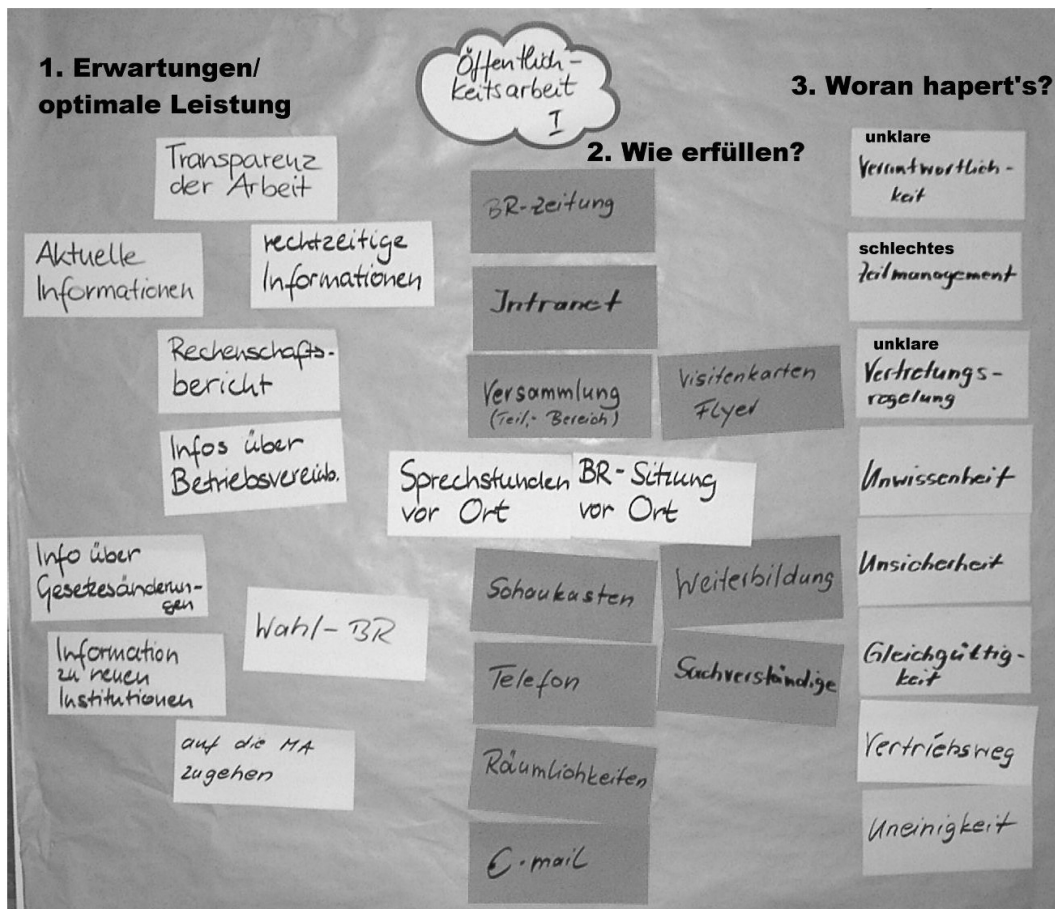 Öffentlich-
keitsarbeit
I
1. Erwartungen/
optimale Leistung
Transparenz
der Arbeit
Aktuelle
Informationen
rechtzeitige
Informationen
Rechenschafts-
bericht
Infos über
Betriebsvereinb.
Info über
Gesetzesänderun-
gen
Wahl-BR
Information
zu neuen
Institutionen
auf die MA
zugehen
2. Wie erfüllen?
BR-Zeitung
Intranet
Versammlung
(Teil,- Bereich)
Visitenkarten
Flyer
Sprechstunden
vor Ort
BR-Sitzung
vor Ort
Schaukasten
Weiterbildung
Telefon
Sachverständige
Räumlichkeiten
E-mail
3. Woran hapert's?
unklare
Verantwortlich-
keit
schlechtes
Zeitmanagement
unklare
Vertretungs-
regelung
Unwissenheit
Unsicherheit
Gleichgültig-
keit
Vertriebsweg
Uneinigkeit